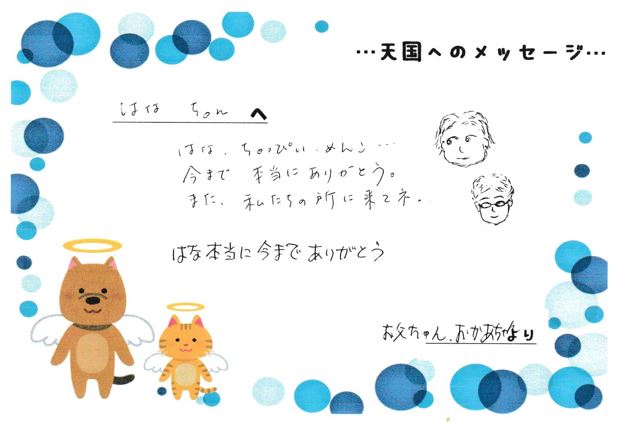 …天国へのメッセージ…
はな ちゃん へ
はな、ちょっぴぃ、めんこ…
今まで 本当にありがとう。
また、私たちの所に来てネ。
はな本当に今までありがとう
お父ちゃん、おかあちゃんより